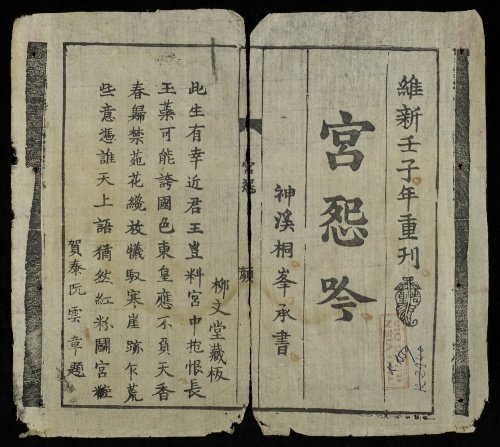 維新壬子年重刊
宮怨吟
神溪桐峯承書
柳文堂藏板
宮怨
題
此生有幸近君王豈料宮中抱恨長
玉蘂可能誇國色東皇應不負天香
春歸禁苑花纔放犧馭寒崖跡乍荒
些意憑誰天上語猶然紅粉鬬宮粧
賀泰阮雲章題